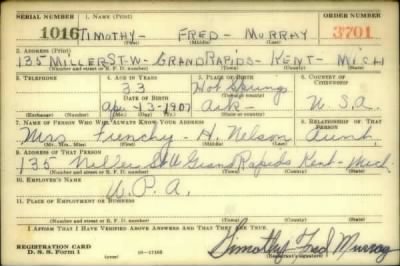 SERIAL NUMBER 1. NAME (Print) ORDER NUMBER
1016 TIMOTHY - FRED - MURRAY 3701
(First) (Middle) (Last)
2. ADDRESS (Print)
135 MILLER ST-W- GRAND RAPIDS - KENT - MICH
(Number and street or R. F. D. number) (Town) (County) (State)
3. TELEPHONE 4. AGE IN YEARS 5. PLACE OF BIRTH 6. COUNTRY OF CITIZENSHIP
33 Hot Springs
DATE OF BIRTH (Town or county)
Ap 13-1907 Ark - U.S.A.
(Mo.) (Day) (Yr.) (State or country)
7. NAME OF PERSON WHO WILL ALWAYS KNOW YOUR ADDRESS 8. RELATIONSHIP OF THAT PERSON
Mrs. Frenchy - H. Nelson Aunt
(Mr., Mrs., Miss) (First) (Middle) (Last)
9. ADDRESS OF THAT PERSON
135 Miller St W Grand Rapids Kent - Mich
(Number and street or R. F. D. number) (Town) (County) (State)
10. EMPLOYER'S NAME
W.P.A.
11. PLACE OF EMPLOYMENT OR BUSINESS
(Number and street or R. F. D. number) (Town) (County) (State)
I AFFIRM THAT I HAVE VERIFIED ABOVE ANSWERS AND THAT THEY ARE TRUE.
REGISTRATION CARD
D. S. S. Form 1
Timothy Fred Murray
(Registrant's signature)